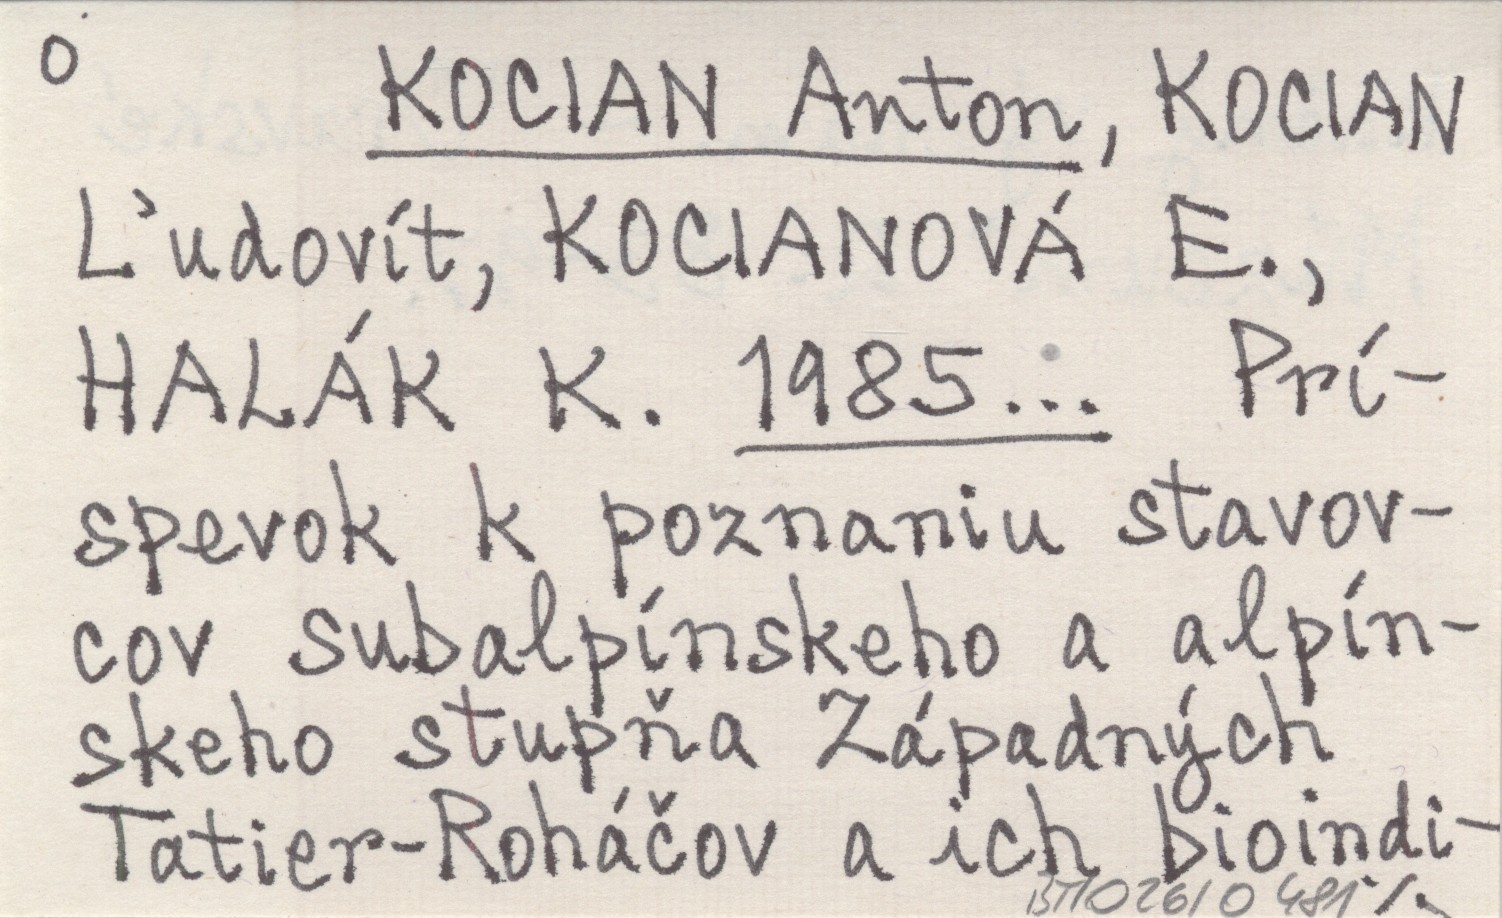 O KOCIAN Anton, KOCIAN
Ľudovít, KOCIANOVÁ E.,
HALÁK K. 1985... Prí-
spevok k poznaniu stavov-
cov subalpínskeho a alpín-
skeho stupňa Západných
Tatier-Roháčov a ich bioindi-
026/0 481 ./.